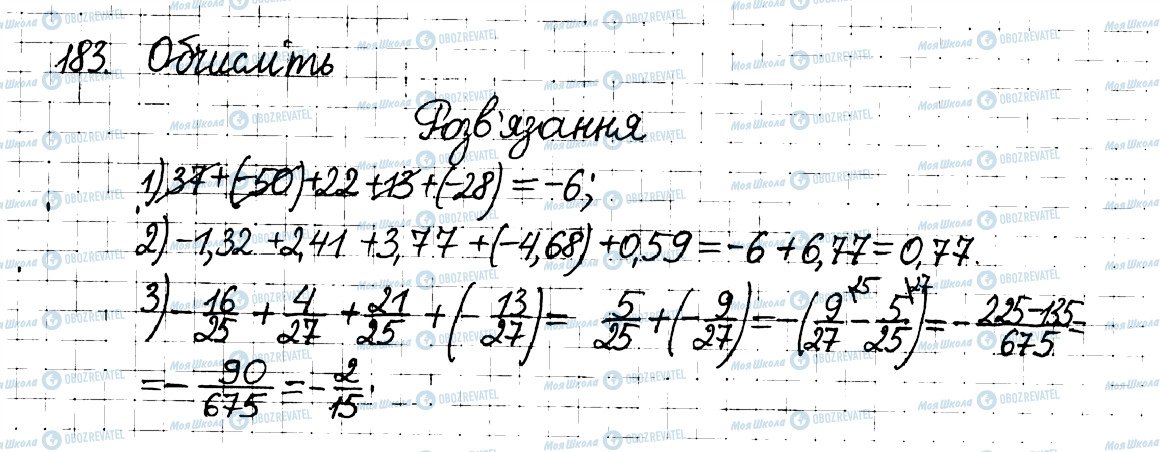 183. Обчисліть
Розв'язання
1) 37 + (-50) + 22 + 13 + (-28) = -6;
2) -1,32 + 2,41 + 3,77 + (-4,68) + 0,59 = -6 + 6,77 = 0,77.
3) - 16/25 + 4/27 + 21/25 + (- 13/27) = 5/25 + (- 9/27) = -(9/27 ·25 - 5/25 ·27) = - 225-135/675 =
= - 90/675 = - 2/15;